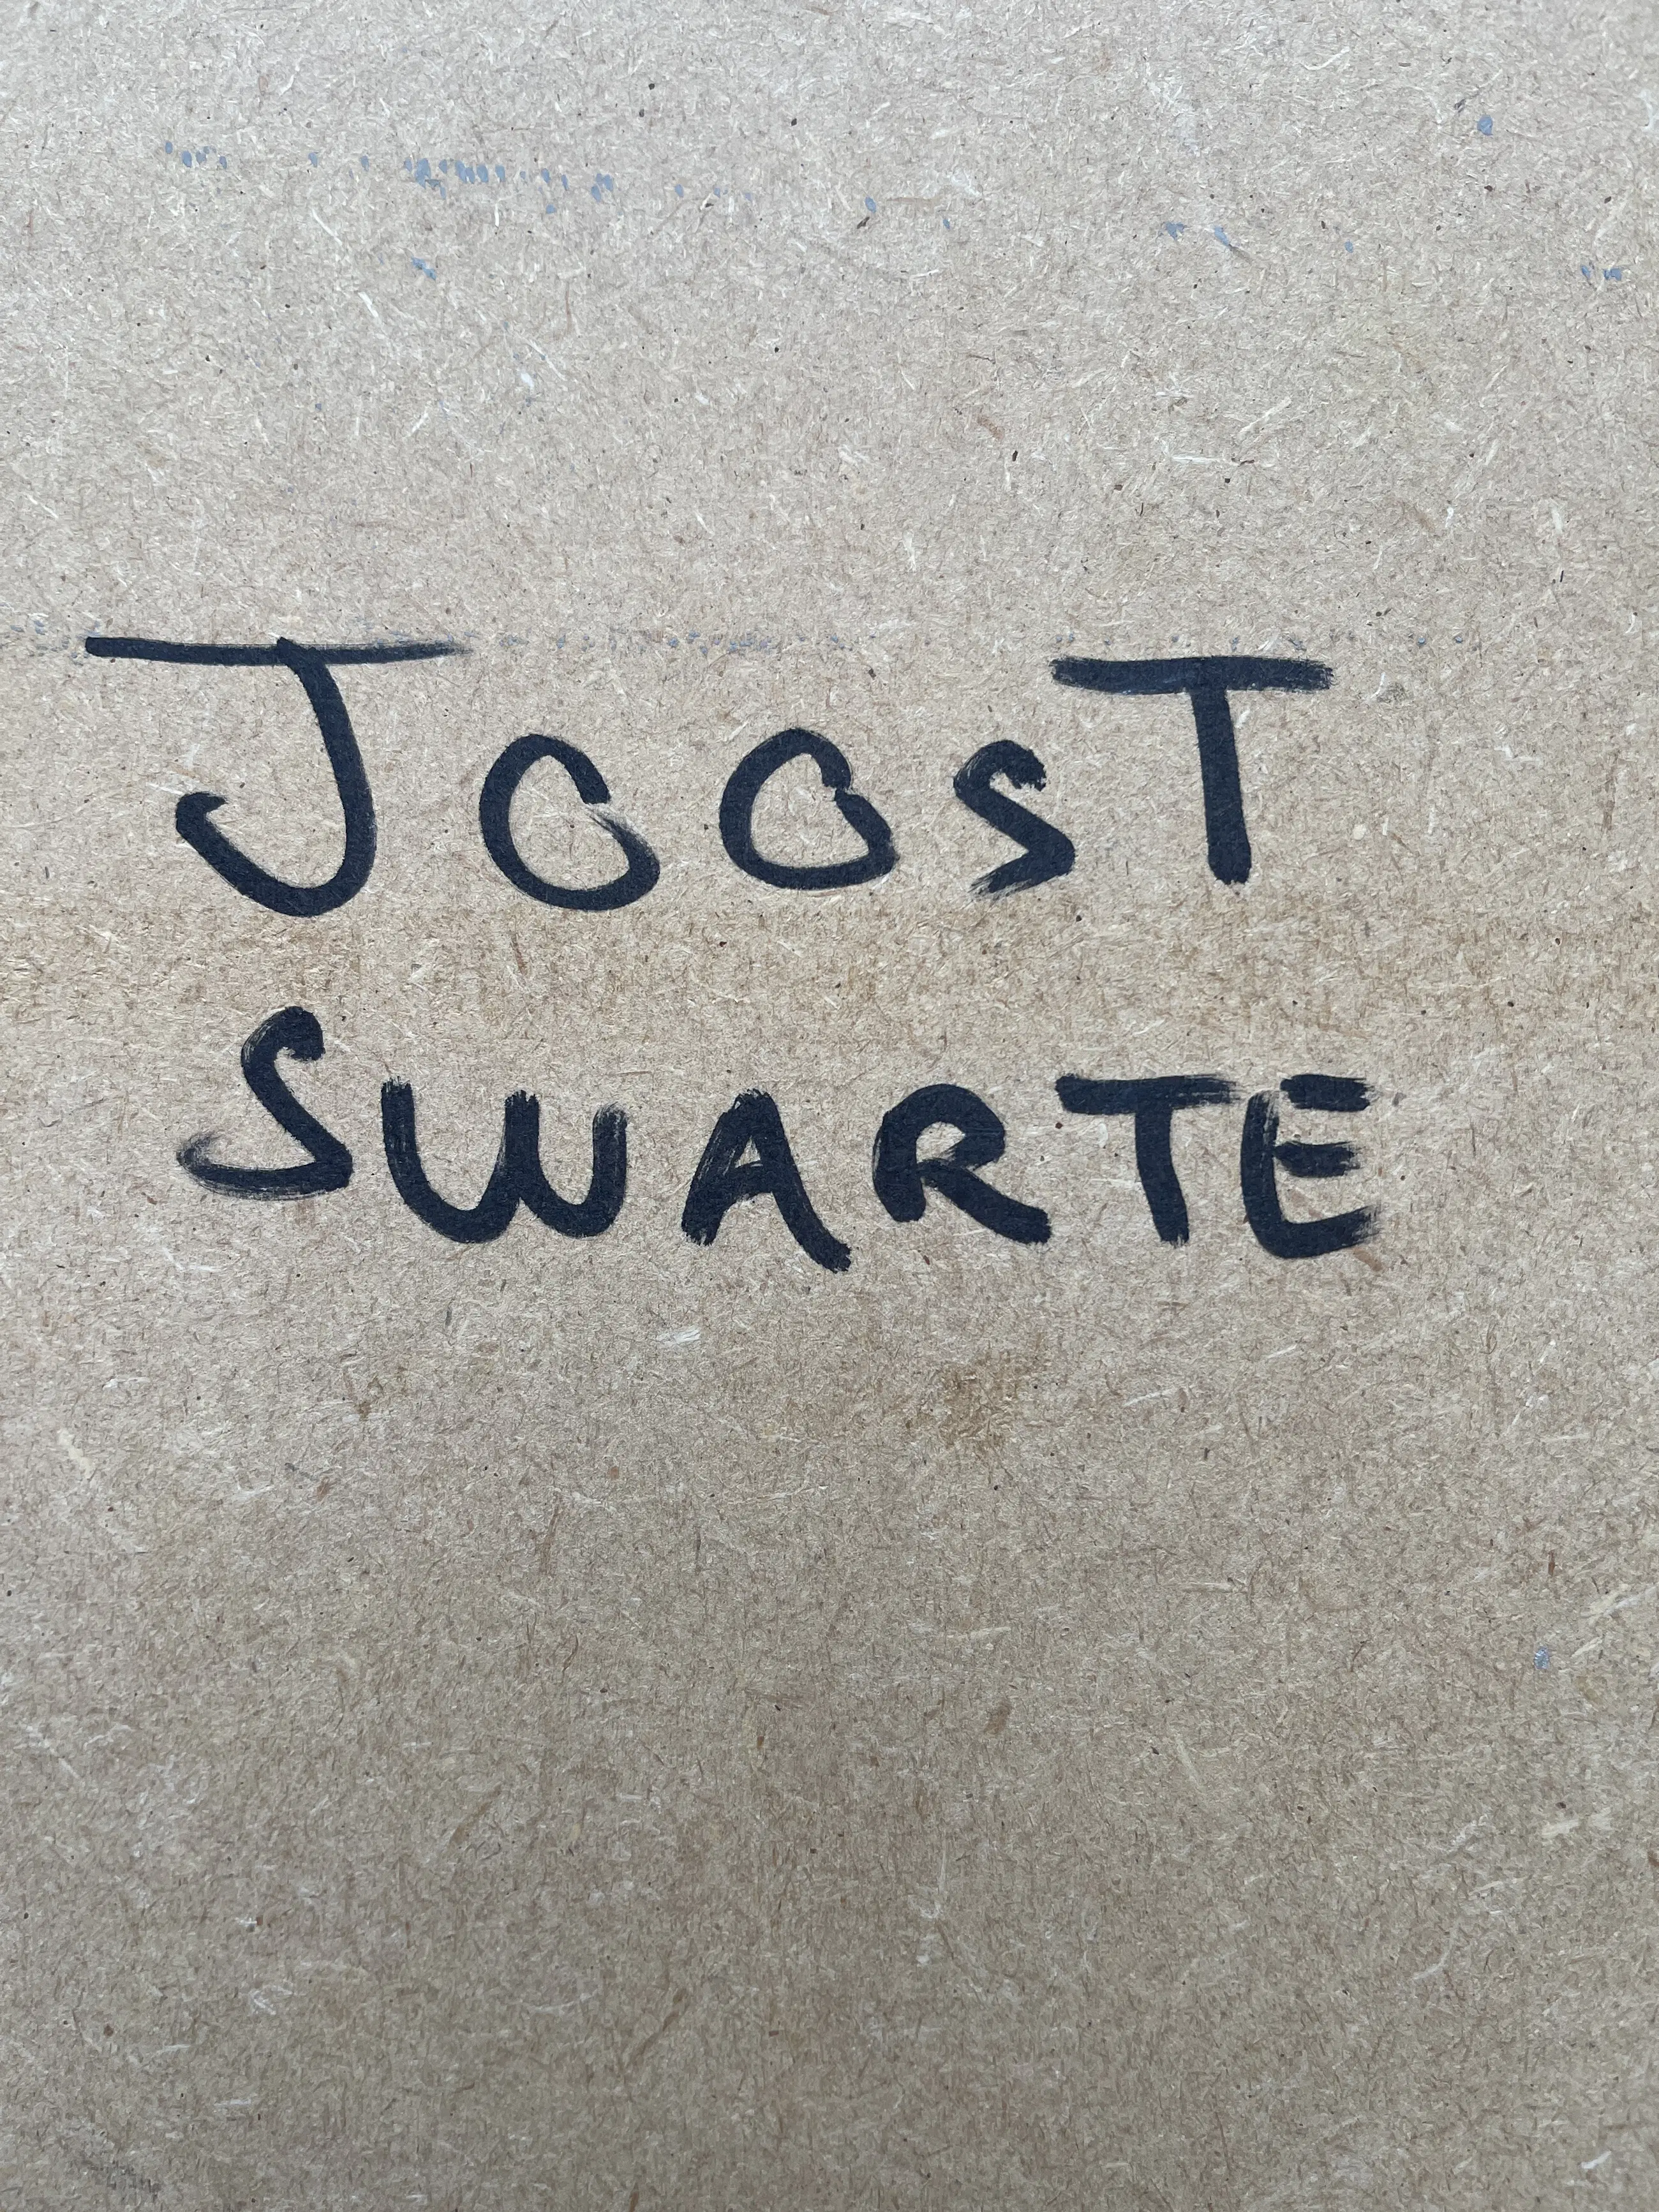 JOOST
SWARTE